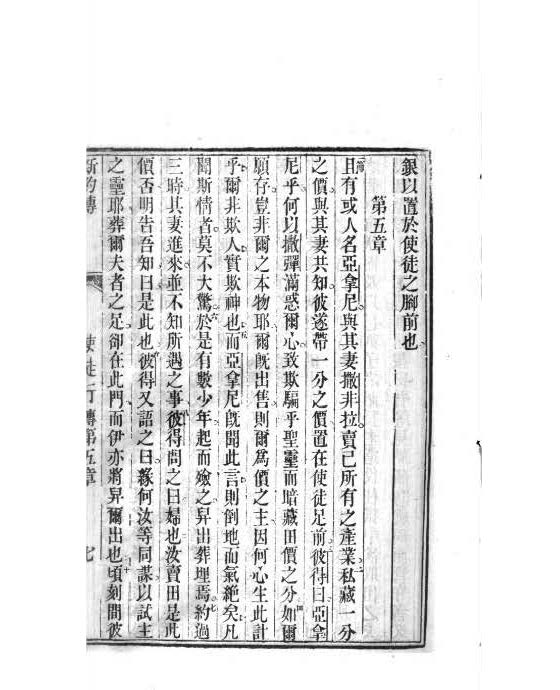 銀以置於使徒之腳前也
第五章
且有或人名亞拿尼與其妻撒非拉賣己所有之產業私藏一分
之價與其妻共知彼遂帶一分之價置在使徒足前彼得曰亞拿
尼乎何以撒彈滿惑爾心致欺騙乎聖靈而暗藏田價之分如爾
願存豈非爾之本物耶爾旣出售則爾爲價之主因何心生此計
乎爾非欺人實欺神也而亞拿尼旣聞此言則倒地而氣絶矣凡
聞斯情者莫不大驚於是有數少年起而殮之舁出葬埋焉約過
三時其妻進來並不知所遇之事彼得問之曰婦也汝賣田是此
價否明告吾知曰是此也彼得又語之曰緣何汝等同謀以試主
之靈耶葬爾夫者之足卻在此門而伊亦將舁爾出也頃刻間彼
新約傳 使徒行傳第五章 七